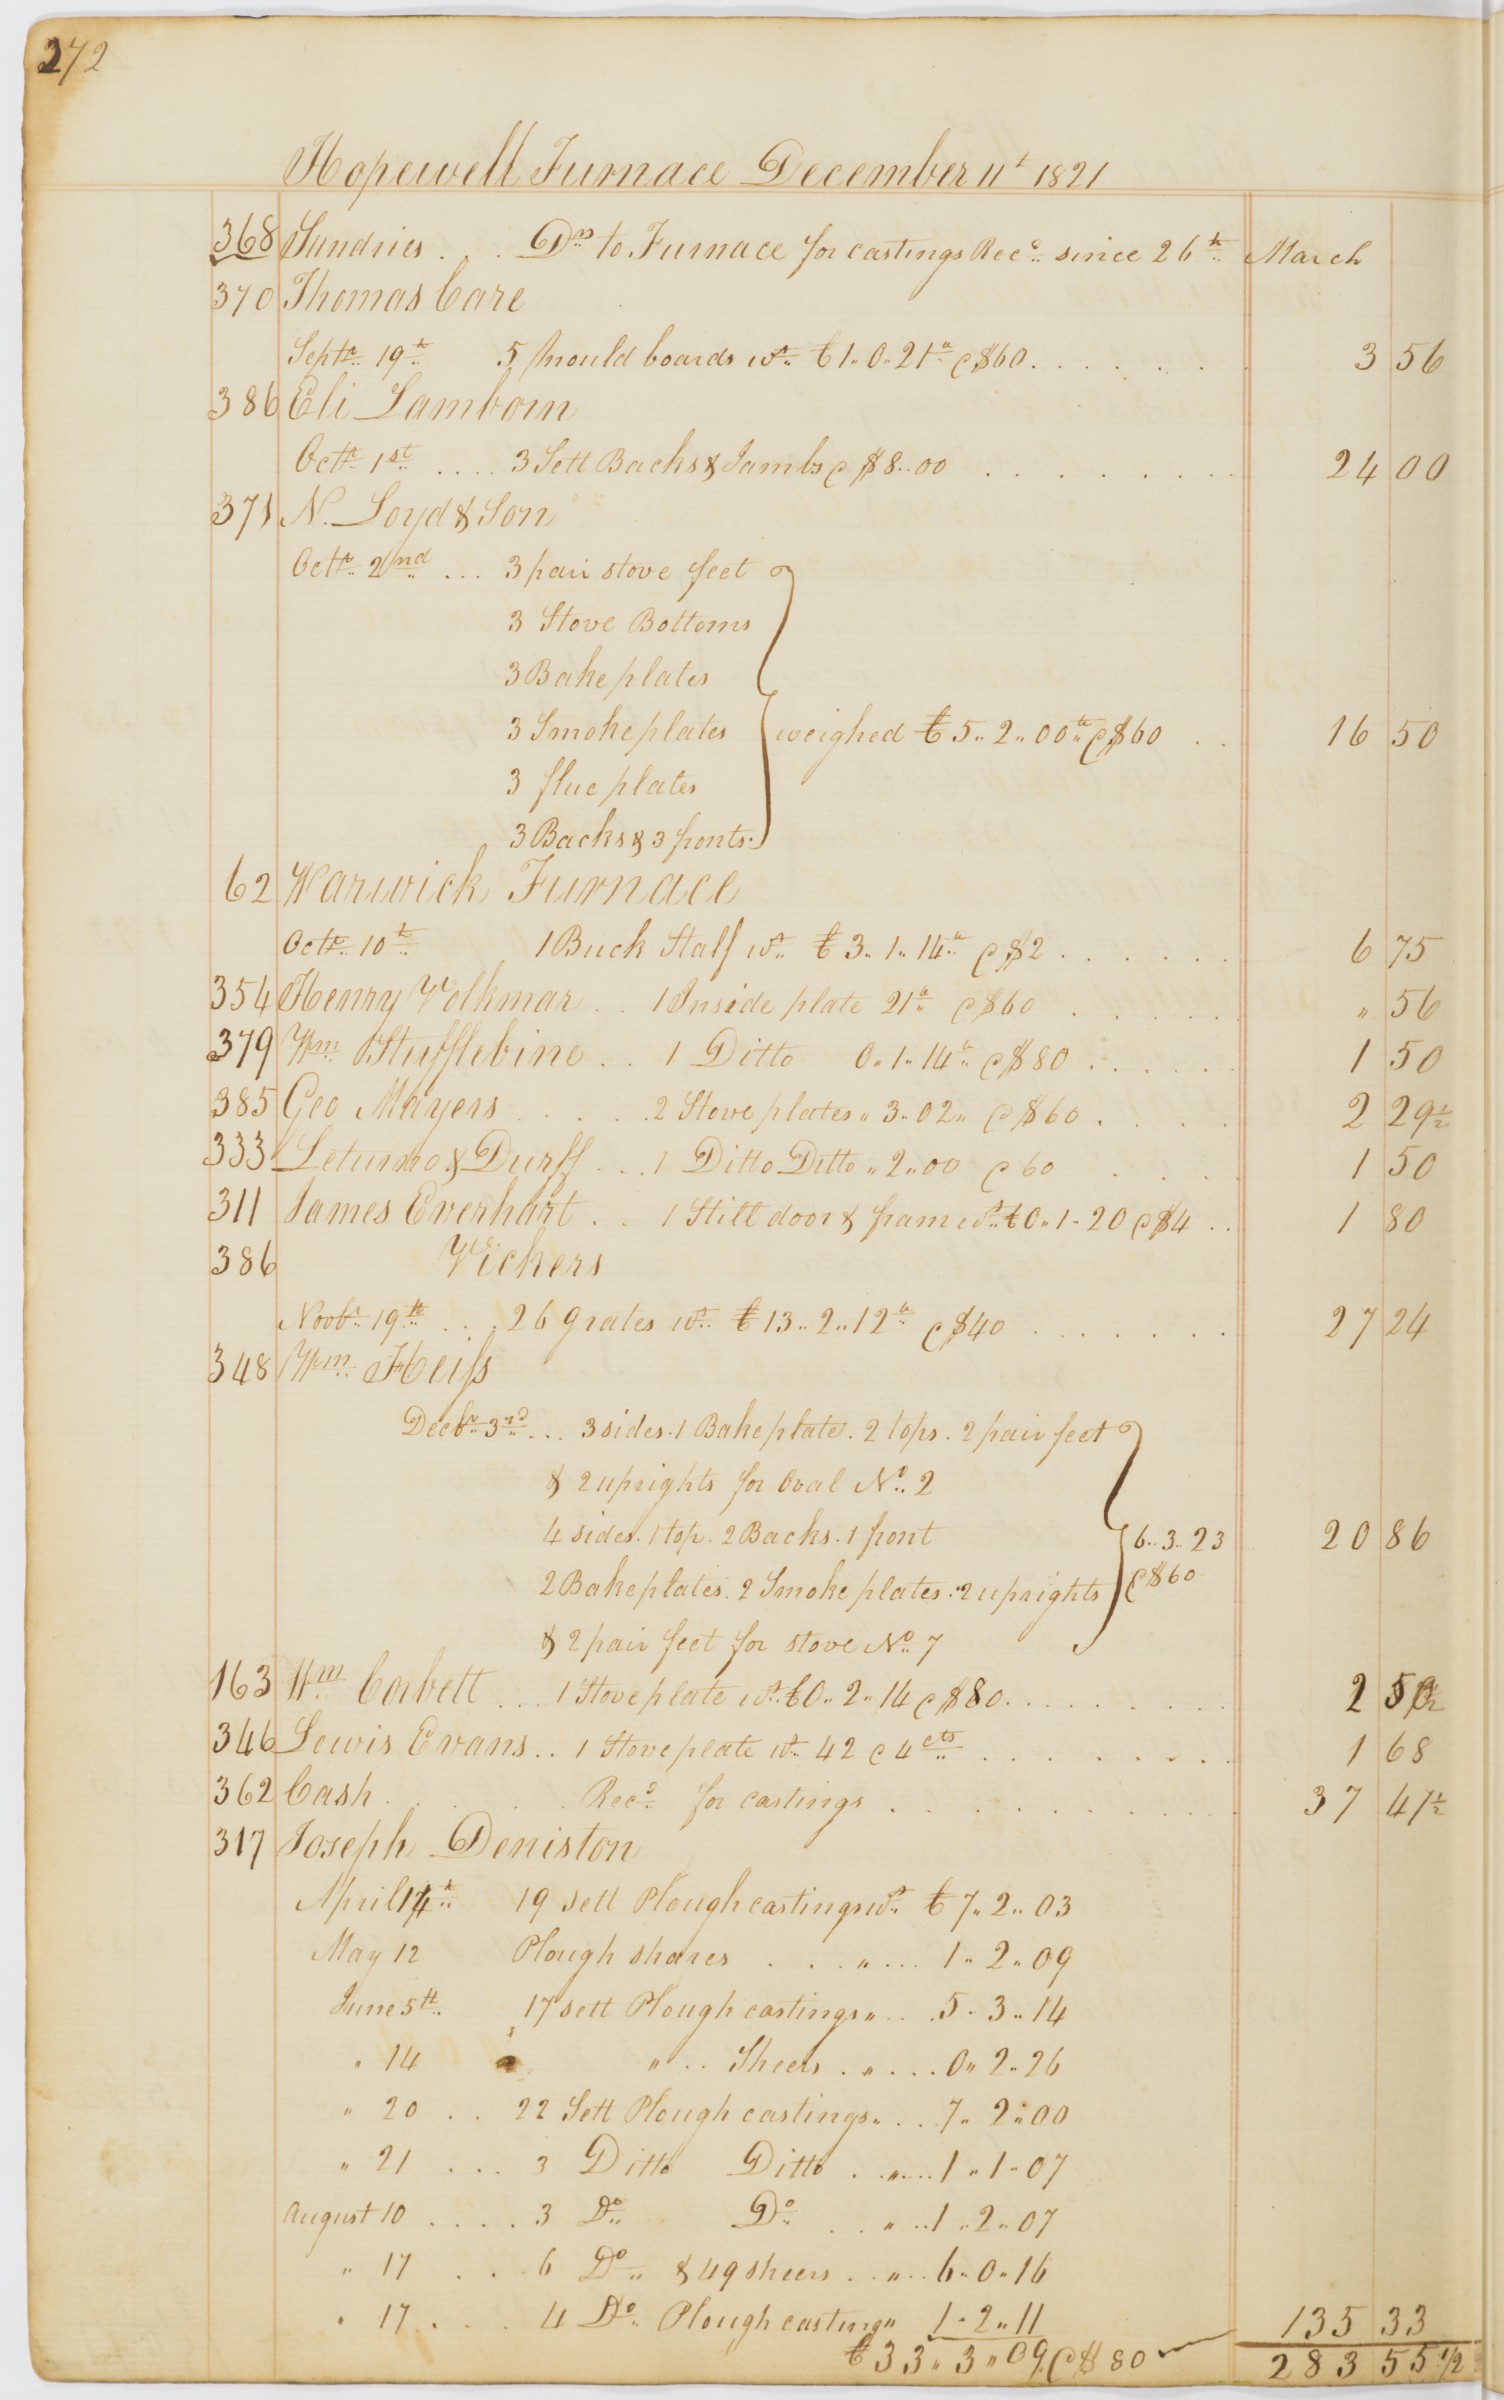 272
Hopewell Furnace December 11t 1821
368 Sundries . . . Drs to Furnace for castings Recd since 26th March
370 Thomas Care
Septr 19th 5 Mould boards wt C 1..0..21lb @ $60 . . . . . . . 3 56
386 Eli Lamborn
Octr 1st .... 3 Sett Backs & Jambs @ $8..00 . . . . . . . 24 00
371 N. Loyd & Son
Octr 2nd ... 3 pair stove feet
3 Stove Bottoms
3 Bake plates
3 Smoke plates weighed C 5..2..00lb @ $60 . . 16 50
3 flue plates
3 Backs & 3 fronts
62 Warwick Furnace
Octr 10th 1 Buck Staff wt C 3..1..14lb @ $2 . . . . . . 6 75
354 Henry Volkmar . . 1 Inside plate 21lb @ $60 . . . . . . " 56
379 Wm Stufflebine . . 1 Ditto 0..1..14lb @ $80 . . . . . . 1 50
385 Geo Mayers . . . . . 2 Stove plates " 3..02 " @ $60 . . . . 2 29½
333 Leturno & Durff ... 1 Ditto Ditto " 2..00 @ 60 . . . . 1 50
311 James Everhart . . 1 Still door & frame wt C 0..1..20 @ $4 . . 1 80
386 Vickers
Novbr 19th . . . 26 Grates wt C 13..2..12lb @ $40 . . . . . . . 27 24
348 Wm Heiss
Decbr 3rd ... 3 sides. 1 Bake plate. 2 tops. 2 pair feet
& 2 uprights for Oval No. 2
4 sides. 1 top. 2 Backs. 1 front 6..3..23 20 86
2 Bake plates. 2 Smoke plates. 2 uprights @ $60
& 2 pair feet for stove No. 7
163 Wm Corbett ... 1 Stove plate wt C 0..2..14 @ $80 . . . . . . . . 2 50
346 Lewis Evans .. 1 Stove plate wt 42 @ 4cts . . . . . . . . 1 68
362 Cash . . . . . Recd for castings . . . . . . . . . . . 37 47½
317 Joseph Deniston
April 14th 19 sett Plough castings wt C 7..2..03
May 12 Plough shares . . . " ... 1..2..09
June 5th 17 sett Plough castings " . . . 5..3..14
" 14 " .. Sheers . " . . . . 0..2..26
" 20 . . 22 Sett Plough castings " . . . 7..2..00
" 21 .... 3 Ditto Ditto . " .... 1..1..07
August 10 .... 3 Do Do . . " .. 1..2..07
" 17 . . . 6 Do & 49 sheers . . " . . 6..0..16
" 17 . . . . 4 Do Plough casting " 1..2..11 135 33
C 33..3..09 @ $80 283 55 1/2